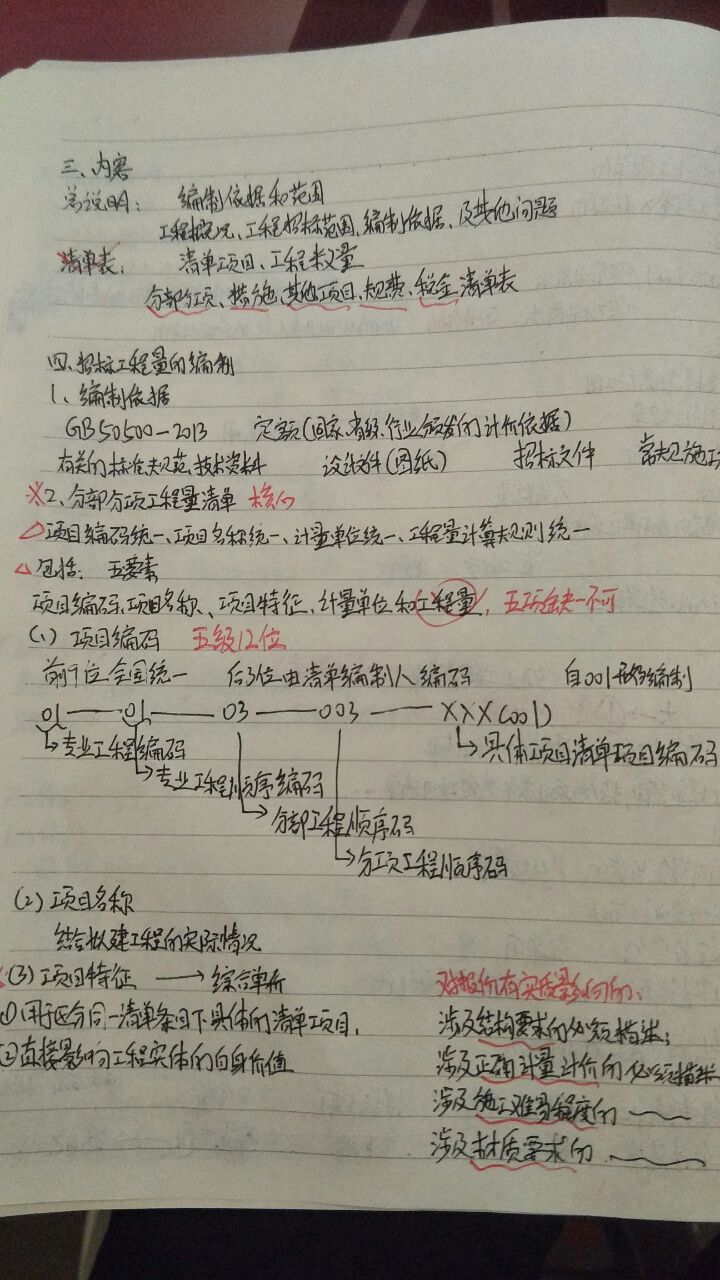 三、内容
总说明: 编制依据和范围
工程概况、工程招标范围、编制依据、及其他问题
清单表: 清单项目、工程数量
分部分项、措施、其他项目、规费、税金清单表
四、招标工程量的编制
1、编制依据
GB50500-2013 定额(国家、省级、行业颁发的计价依据)
有关的标准规范、技术资料 设计文件(图纸) 招标文件 常规施工
※2、分部分项工程量清单 核心
△项目编码统一、项目名称统一、计量单位统一、工程量计算规则统一
△包括: 五要素
项目编码、项目名称、项目特征、计量单位和工程量, 五项缺一不可
(1) 项目编码 五级12位
前9位全国统一 后3位由清单编制人编码 自001开始编制
01——01——03——003——XXX(001)
→具体项目清单项目编码
→专业工程编码
→专业工程顺序编码
→分部工程顺序码
→分项工程顺序码
(2) 项目名称
结合拟建工程的实际情况
(3) 项目特征 → 综合单价 对报价有实质影响的:
①用于区分同一清单条目下具体的清单项目, 涉及结构要求的必须描述;
②直接影响工程实体的自身价值 涉及正确计量计价的必须描述
涉及施工难易程度的
涉及材质要求的